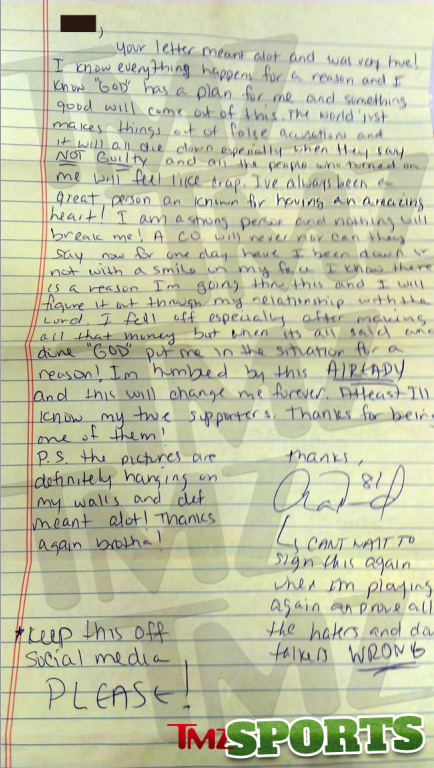 ,
your letter meant alot and was very true!
I know everything happens for a reason and I
know "GOD" has a plan for me and something
good will come out of this. The world just
makes things out of false accusations and
it will all die down especially when they say
NOT GUILTY and all the people who turned on
me will feel like crap. I've always been a
great person an known for having an amazing
heart! I am a strong person and nothing will
break me! A CO will never nor can they
say now for one day have I been down or
not with a smile in my face I know there
is a reason I'm going thru this and I will
figure it out through my relationship with the
Lord. I fell off especially after making
all that money but when its all said and
done "GOD" put me in the situation for a
reason! I'm humbled by this ALREADY
and this will change me forever. Atleast I'll
know my true supporters. Thanks for being
one of them!
P.S. the pictures are
definitely hanging on
my walls and def
meant alot! Thanks
again brotha!
Thanks,
81
CANT WAIT TO
sign this again
when I'm playing
again an prove all
the haters and
talkers WRONG
*Keep this off
social media
PLEASE!
TMZ SPORTS
TMZ